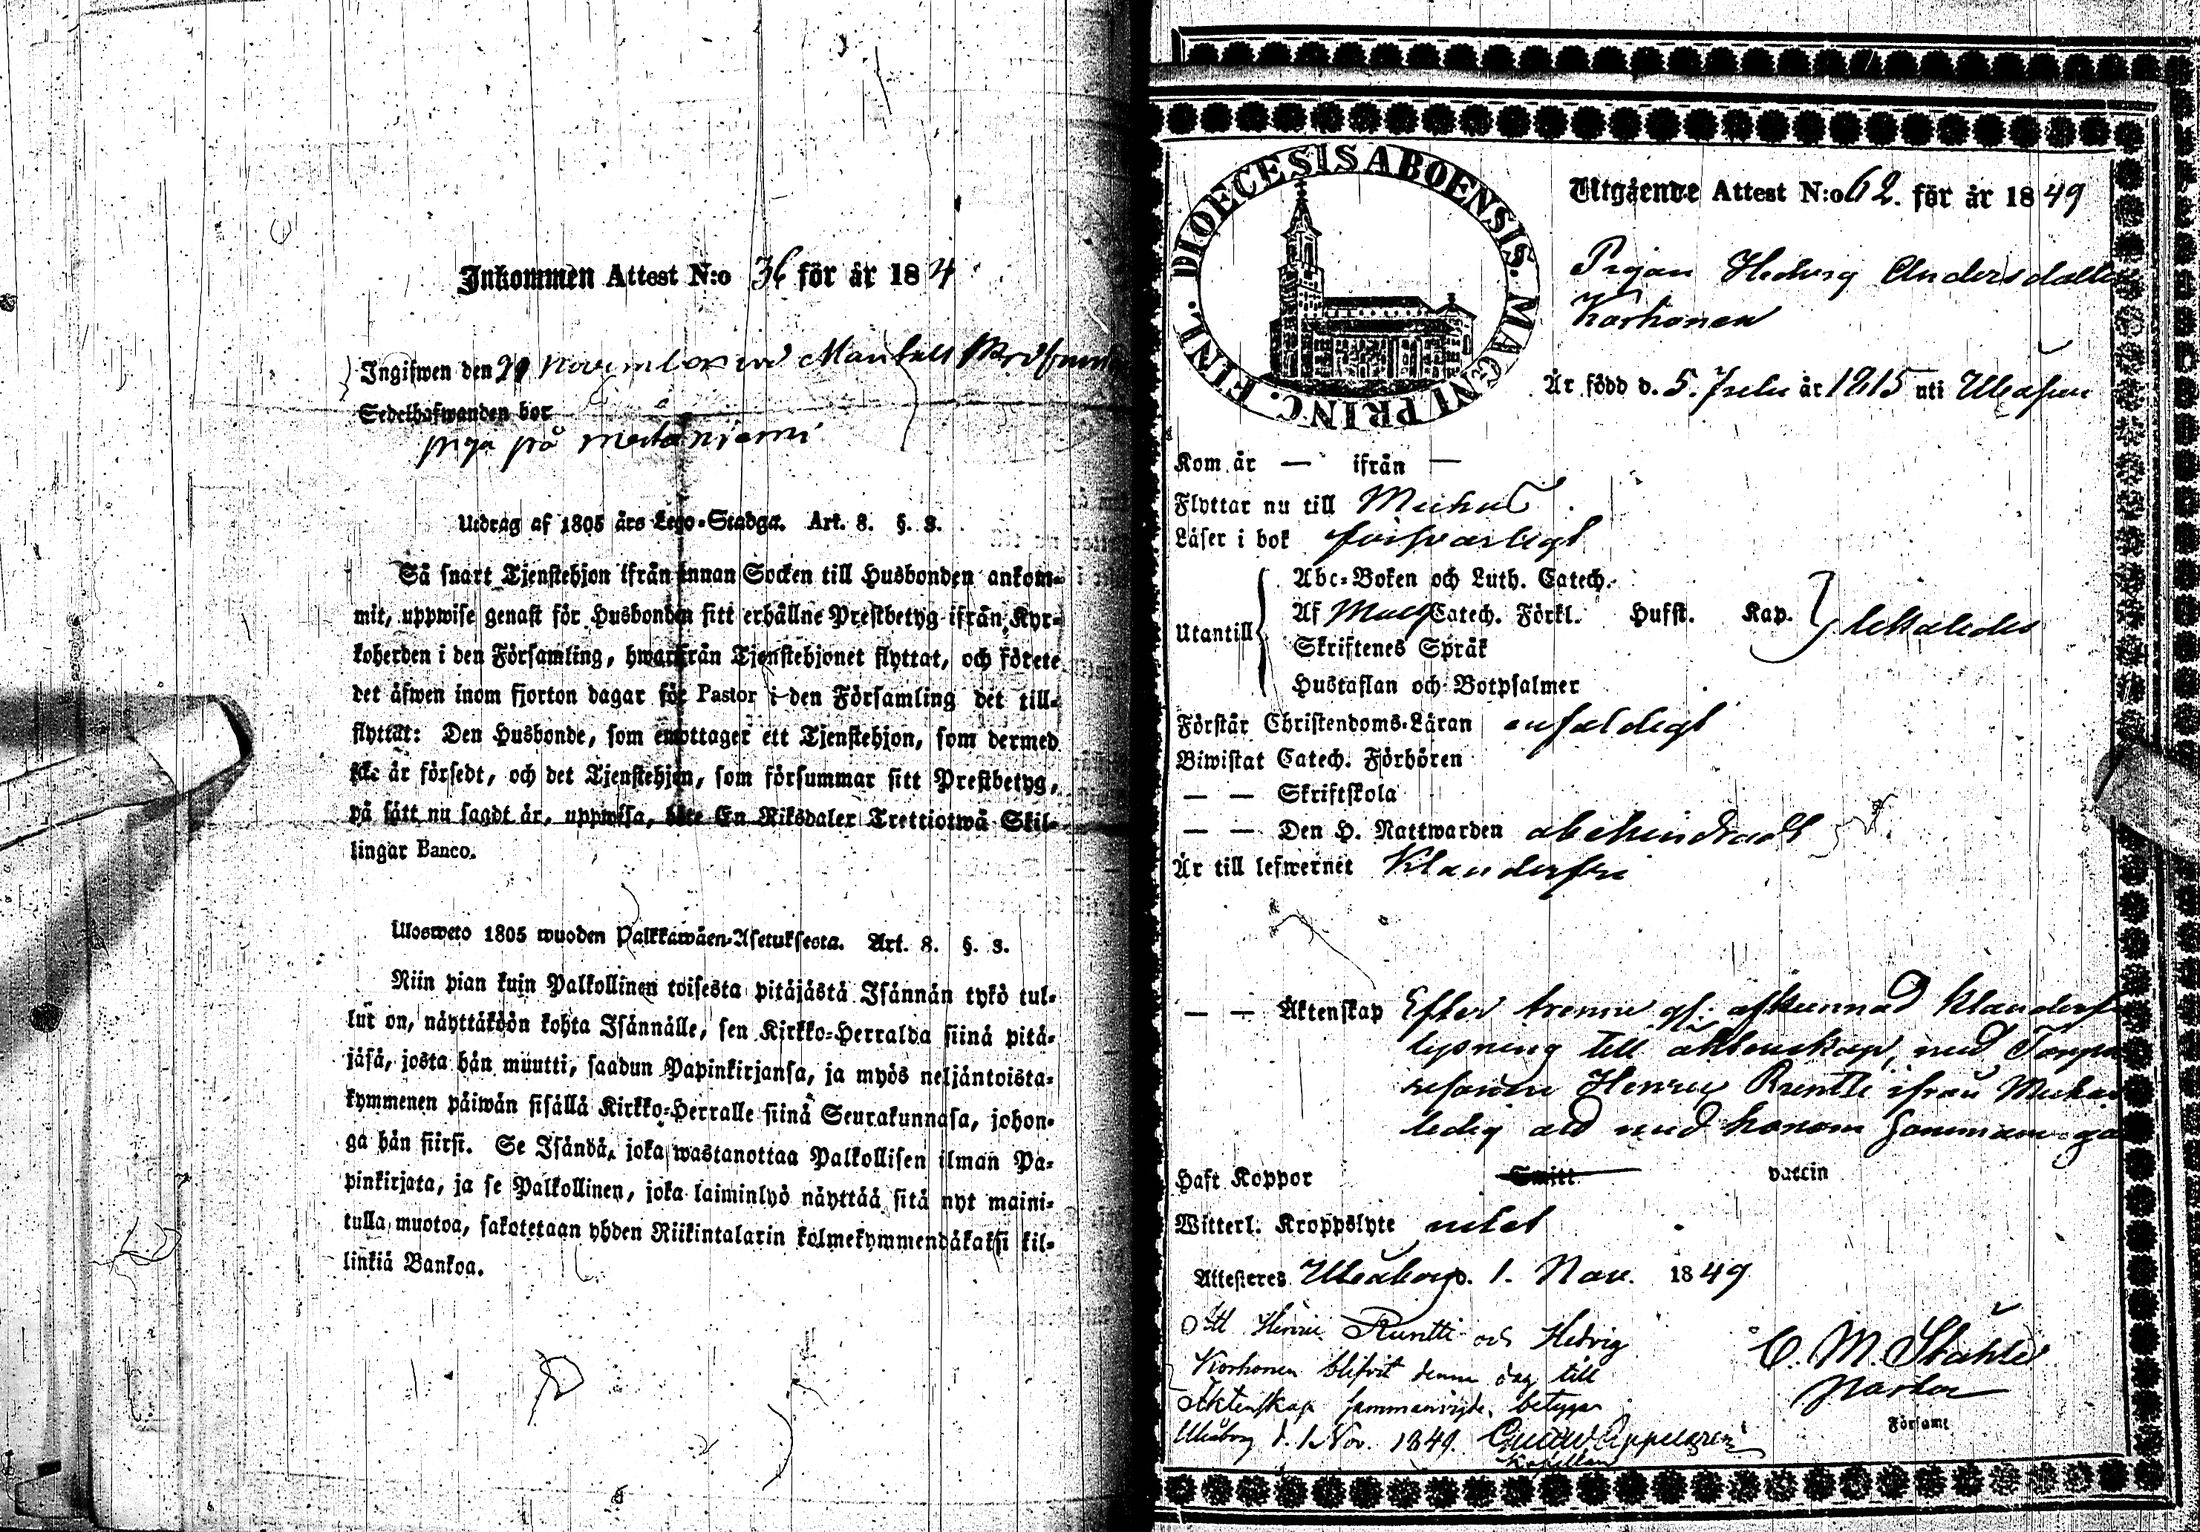 Inkommen Attest N:o 36 för år 184
Ingifwen den 29 november wid Mantals
Sedelhafwanden bor
piga på
Utdrag af 1805 års Lego-Stadga. Art. 8. §. 3.
Så snart Tjenstehjon ifrån annan Socken till Husbonden ankom-
mit, uppwise genast för Husbonden sitt erhållne Prestbetyg ifrån Kyr-
koherden i den Församling, hwarifrån Tjenstehjonet flyttat, och förete
det äfwen inom fjorton dagar för Pastor i den Församling det till-
flyttat: Den Husbonde, som emottager ett Tjenstehjon, som dermed
icke är försedt, och det Tjenstehjon, som försummar sitt Prestbetyg,
på sätt nu sagdt är, uppwisa, böte En Riksdaler Trettiotwå Skil-
lingar Banco.
Uloswето 1805 wuoden Palkkawäen-Asetuksesta. Art. 8. §. 3.
Niin pian kuin Palkollinen toisesta pitäjästä Isännän tykö tul-
lut on, näyttäköön kohta Isännälle, sen Kirkko-Herralda siinä pitä-
jäsä, josta hän muutti, saadun Papinkirjansa, ja myös neljäntoista-
kymmenen päiwän sisällä Kirkko-Herralle siinä Seurakunnasa, johon-
ga hän siirsi. Se Isändä, joka wastanottaa Palkollisen ilman Pa-
pinkirjata, ja se Palkollinen, joka laiminlyö näyttää sitä nyt maini-
tulla muotoa, sakotetaan yhden Riikintalarin kolmekymmendäkaksi kil-
linkiä Bankoa.
DIOECESIS ABOENSIS. MAGNI PRINC. FINL.
Utgående Attest N:o 62. för år 1849
Pigan Hedvig Andersdotter
Korhonen
Är född d. 5. Julii år 1815 uti Uleåsu
Kom år — ifrån —
Flyttar nu till Muhos
Läser i bok försvarligt
Utantill
Abc-Boken och Luth. Catech.
Af Catech. Förkl. Hufst. Kap.
Skriftenes Språk
Hustaflan och Botpsalmer
Förstår Christendoms-Läran enfaldigt
Biwistat Catech. Förhören
— — Skriftskola
— — Den H. Nattwarden obehindradt
Är till lefwernet Klanderfri
— — Äktenskap Efter trenne gr: afkunnad klanderf
lysning till äktenskap, med Torpa
Henric Runtti ifrån Muhos
ledig att med honom sammanga
Haft Koppor Smitt vaccin
Witterl. Kroppslyte intet
Attesteres Uleåborg d. 1. Nov. 1849
Att Henric Runtti och Hedvig
Korhonen blifvit denna dag till
Äktenskap sammanvigde, betygar
Uleåborg d. 1 Nov. 1849. Gustav Appelgren
Kapellan
C. M. Ståhle
Pastor
Församl